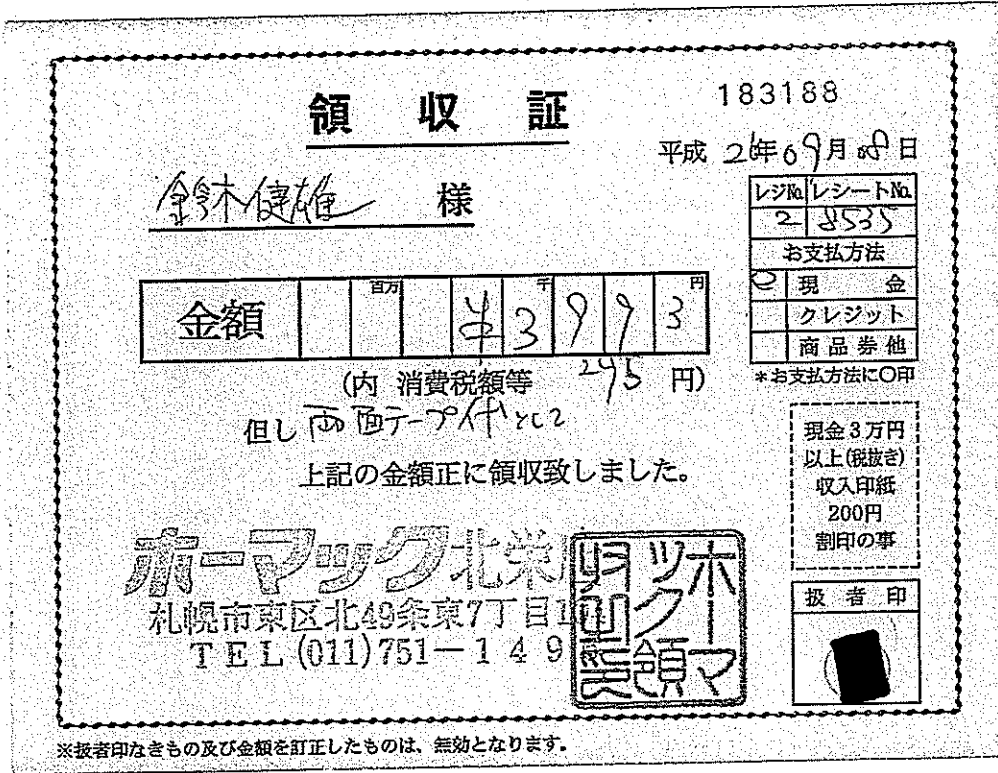 領収証
183188
平成 26年09月08日
鈴木健雄 様
レジNo. レシートNo.
2 8535
お支払方法
現金
クレジット
商品券他
*お支払方法に○印
金額 百万 千 円
¥3993
(内 消費税額等 295 円)
但し 両面テープ代として
上記の金額正に領収致しました。
現金3万円
以上(税抜き)
収入印紙
200円
割印の事
ホーマック北栄
札幌市東区北49条東7丁目
TEL (011)751-149
ホーマック領収証
扱者印
※扱者印なきもの及び金額を訂正したものは、無効となります。